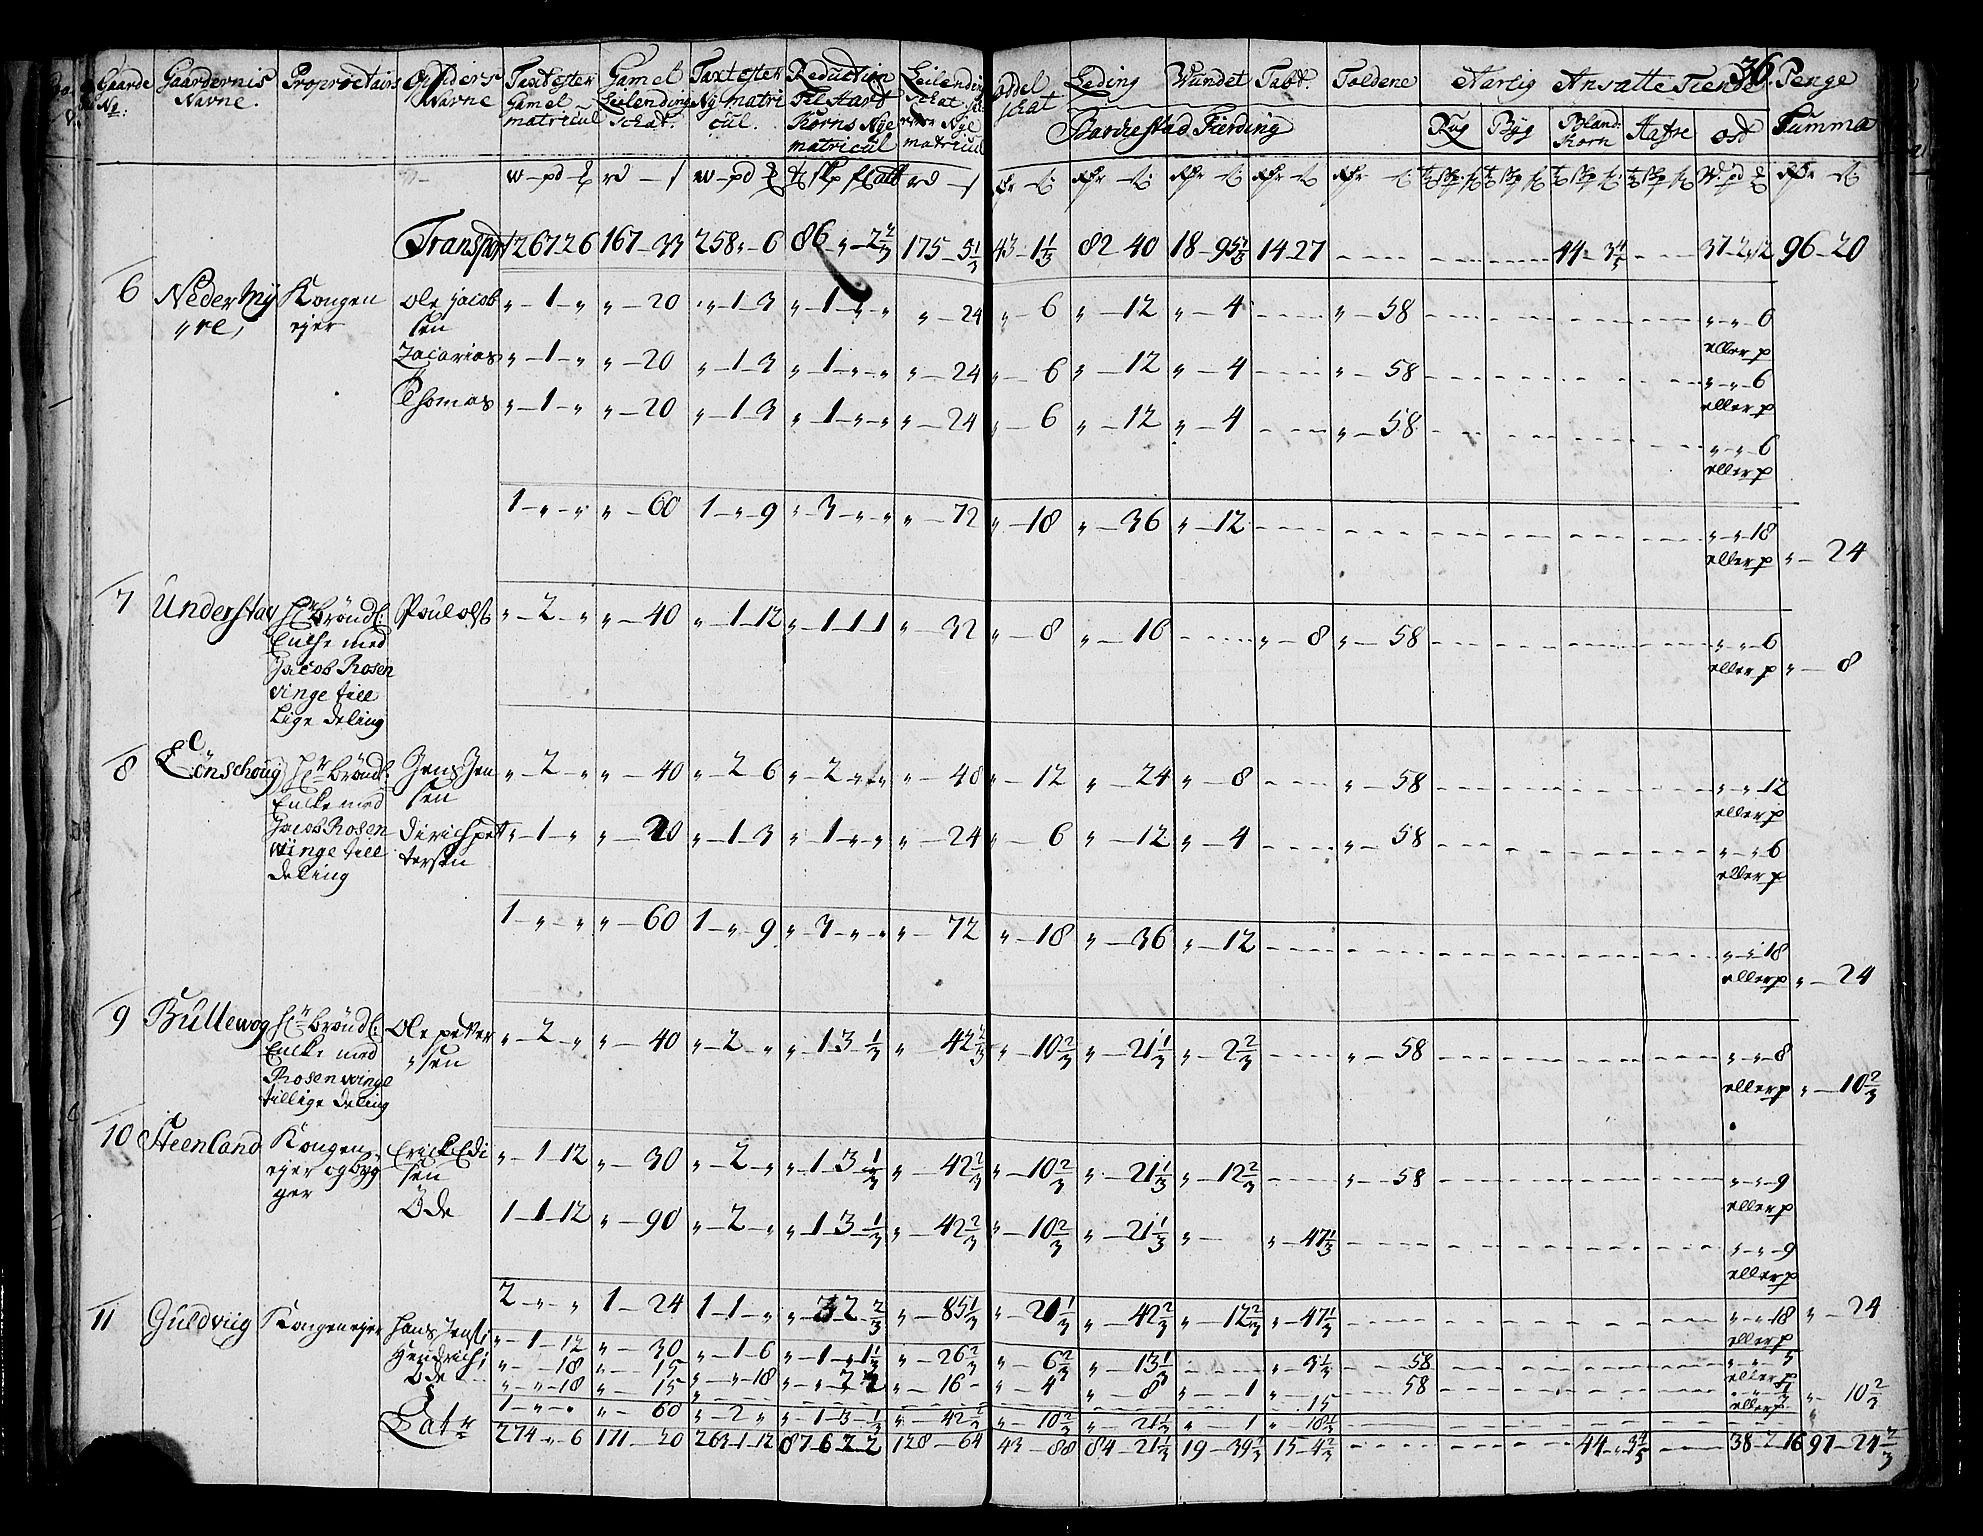 36.
Gaarde No: Gaardernis Navne. Proprietairs Opsiders Navne Taxt efter Gamel matricul Gamel Leilending Schat. Taxt efter Ny matricul. Reduction Til Hart Korns Nye matricul Leilending Schat efter Nye matricul Oddel schat Leding Wundet Tabt. Toldene Aarlig Ansatte Tiende Penge Summa
Barchestad Fierding
Rug Byg Bland Korn Hafre ost
Transport 267 2 6 167 - 33 258 " 6 86 " - 2 2/3 175 - 5 1/3 43 - 1 1/3 82 - 40 18 - 95 1/3 14 - 27 44 - 3 4/5 37 - 2 - 12 96 - 20
6 Neder Myre, Kongen ejer Ole jacobsen " - 1 - " " - 20 " - 1 3 " - 1 - " - " " - 24 " - 6 " - 12 " - 4 " - 58 " - " - 6 eller p
Zacarias " - 1 - " " - 20 " - 1 - 3 " - 1 - " - " " - 24 " - 6 " - 12 " - 4 " - 58 " - " - 6 eller p
Thomas " - 1 - " " - 20 " - 1 3 " - 1 - " - " " - 24 " - 6 " - 12 " - 4 " - 58 " - " - 6 eller p
1 - " - " " - 60 1 - " - 9 " - 3 - " - " " - 72 " - 18 " - 36 " - 12 " - " - 18 eller p " - 24
7 Understav Hr Bröndl: Encke med Jacob Rosenvinge till Lige deling Poul ols " - 2 - " " - 40 " - 1 - 12 " - 1 1 1 " - 32 " - 8 " - 16 " - 8 " - 58 " - " - 6 eller p " - 8
8 Lönschouj Hr Bröndl: Encke med Jacob Rosenwinge till deling Jens Jensen " - 2 - " " - 40 " - 2 6 " - 2 - " - " " - 48 " - 12 " - 24 " - 8 " - 58 " - " - 12 eller p
Dirich pettersen " - 1 - " " - 20 " - 1 3 " - 1 - " - " " - 24 " - 6 " - 12 " - 4 " - 58 " - " - 6 eller p
1 - " - " " - 60 1 - " - 9 " - 3 - " - " " - 72 " - 18 " - 36 " - 12 " - " - 18 eller p " - 24
9 Bullewog Hr Bröndl: Encke med Rosenwinge tillige deling Ole petersen " - 2 - " " - 40 " - 2 - " " - 1 3 1/3 " - 42 2/3 " - 10 2/3 " - 21 1/3 " - 2 2/3 " - 58 " - " - 8 eller p " - 10 2/3
10 Steenland Kongen ejer og bygger Erick Edisen " - 1 12 " - 30 " - 2 - " " - 1 3 1/3 " - 42 2/3 " - 10 2/3 " - 21 1/3 " - 12 2/3 " - 58 " - " - 9 eller p
Öde 1 - 1 12 " - 90 " - 2 - " " - 1 3 1/3 " - 42 2/3 " - 10 2/3 " - 21 1/3 " - " - 47 1/3 " - " - 9 eller p
2 - " - " 1 - 24 1 - 1 - " " - 3 2 2/3 " - 85 1/3 " - 21 1/3 " - 42 2/3 " - 12 2/3 " - 47 1/3 " - " - 18 eller p " - 24
11 Guldviig Kongen ejer Hans Jens: " - 1 - 12 " - 30 " - 1 - 6 " - 1 - " 1 1/3 " - 26 2/3 " - 6 2/3 " - 13 1/3 " - 3 1/3 58 " - " - 5 eller p
Hendrich: " - " - 18 " - 15 " - " - 18 " - " - 2 2 " - 16 - " - 4 " - 8 " - 1 58 eller p
Öde " - " - 18 " - 15 15
1 - " - " " - 60 " - 2 " " - 1 - 3 - 1/3 " - 42 2/3 " - 10 2/3 " - 21 1/3 " 1 " 18 1/3 eller p " - 10 2/3
Lat 274 - " 6 171 - 20 263 - 1 - 12 87 6 2 2 128 - 64 43 - 88 84 - 21 1/3 19 - 39 1/3 15 - 4 2/3 44 - 3 4/5 38 - 2 - 16 97 - 24 2/3